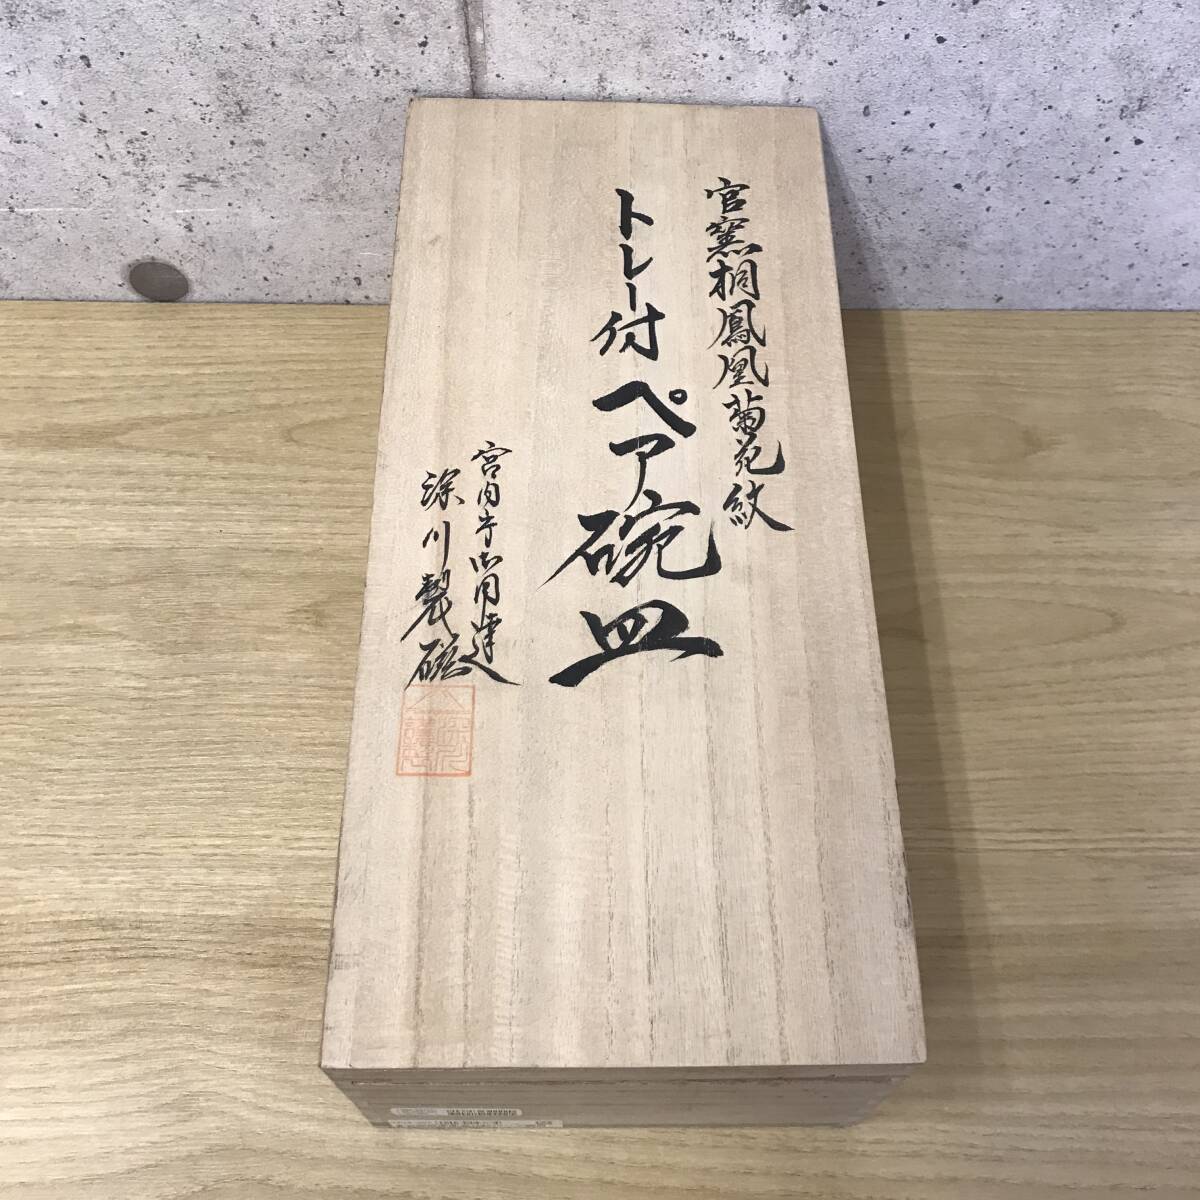 官窯桐鳳凰菊花紋
トレー付ペア碗皿
宮内庁御用達
深川製磁